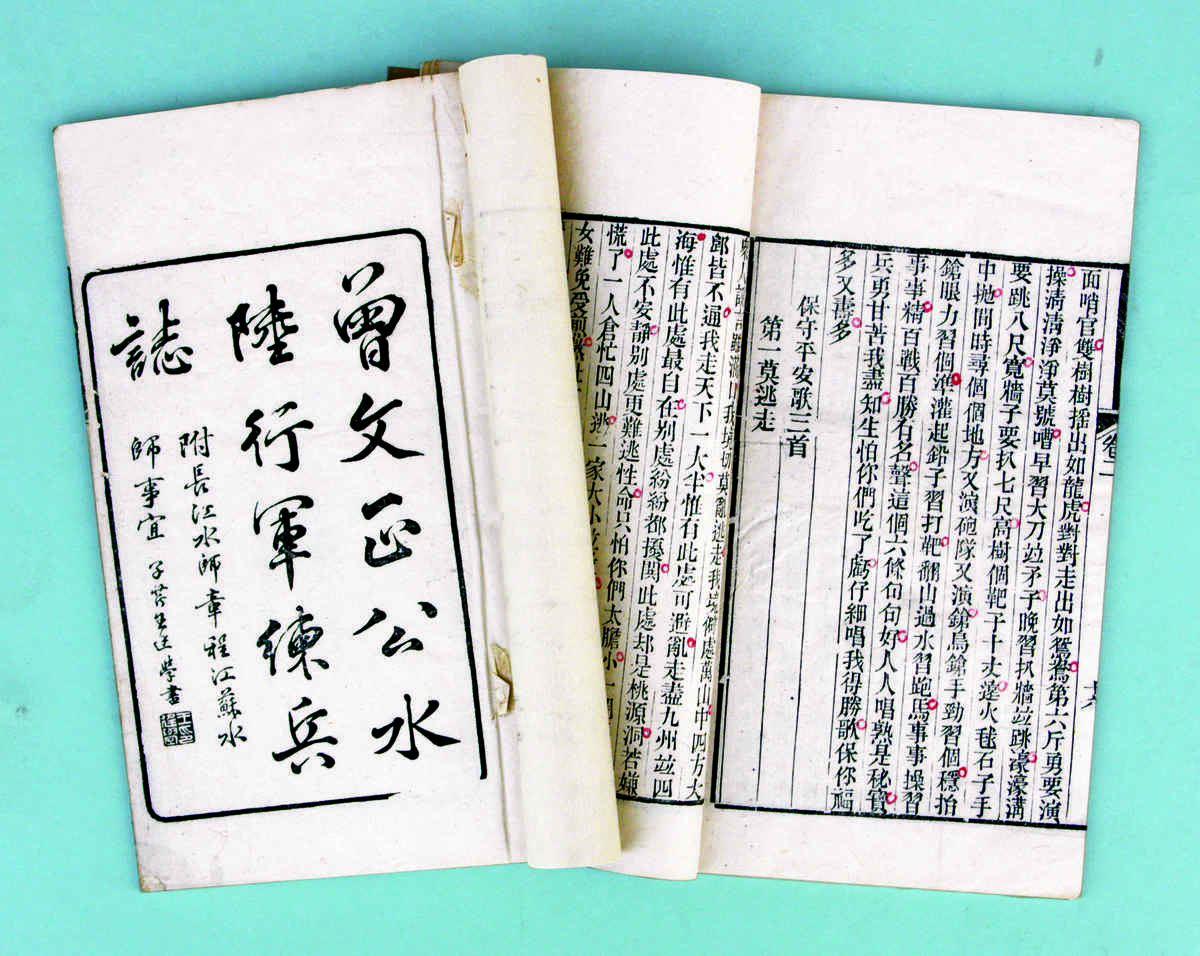 卷二
面哨官雙樹樹搖出如龍虎對對走出如鴛鴦第六斥勇要演
操清清淨淨莫號嘈早習大刀並矛子晚習扒牆並跳濠濠溝
要跳八尺寬牆子要扒七尺高樹個靶子十丈遠火毬石子手
中拋閒時尋個個地方又演砲隊又演鎗鳥鎗手勁習個穩抬
鎗眼力習個準灌起鉛子習打靶翻山過水習跑馬事事操習
事事精百戰百勝有名聲這個六條句句好人人唱熟是秘寶
兵勇甘苦我盡知生怕你們吃了虧仔細唱我得勝歌保你福
多又壽多
保守平安歌三首
第一莫逃走
我境切莫亂逃走我境僻處萬山中四方大
皆不通我走天下一大半惟有此處可避亂走盡九州並四
海惟有此處最自在別處紛紛都擾閧此處却是桃源洞若嫌
此處不安靜別處更難逃性命只怕你們太膽小一
慌了一人倉忙四山逃一家大小
女難免受煎熬
曾文正公水
陸行軍練兵
誌
附長江水師章程江蘇水
師事宜